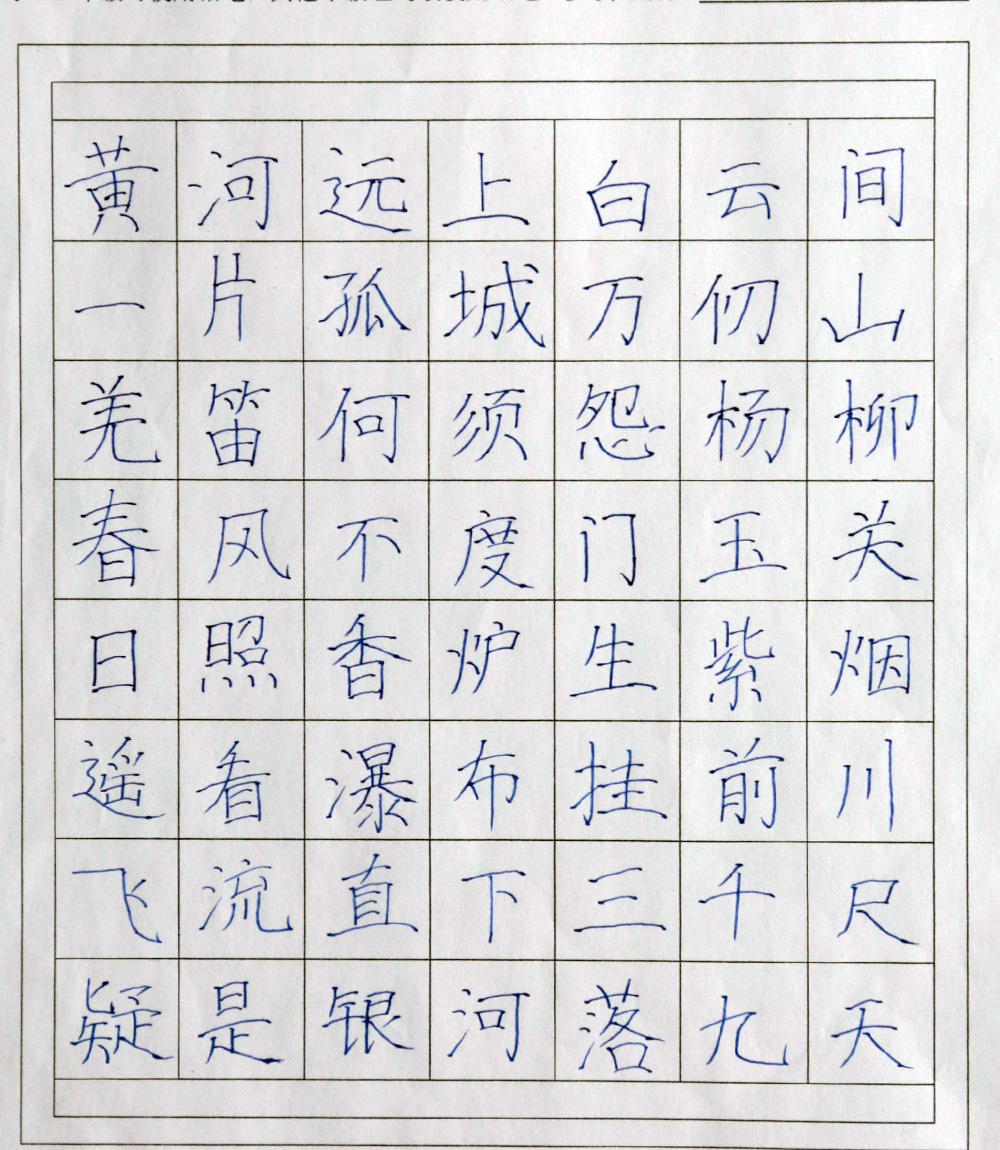 黄河远上白云间
一片孤城万仞山
羌笛何须怨杨柳
春风不度门玉关
日照香炉生紫烟
遥看瀑布挂前川
飞流直下三千尺
疑是银河落九天